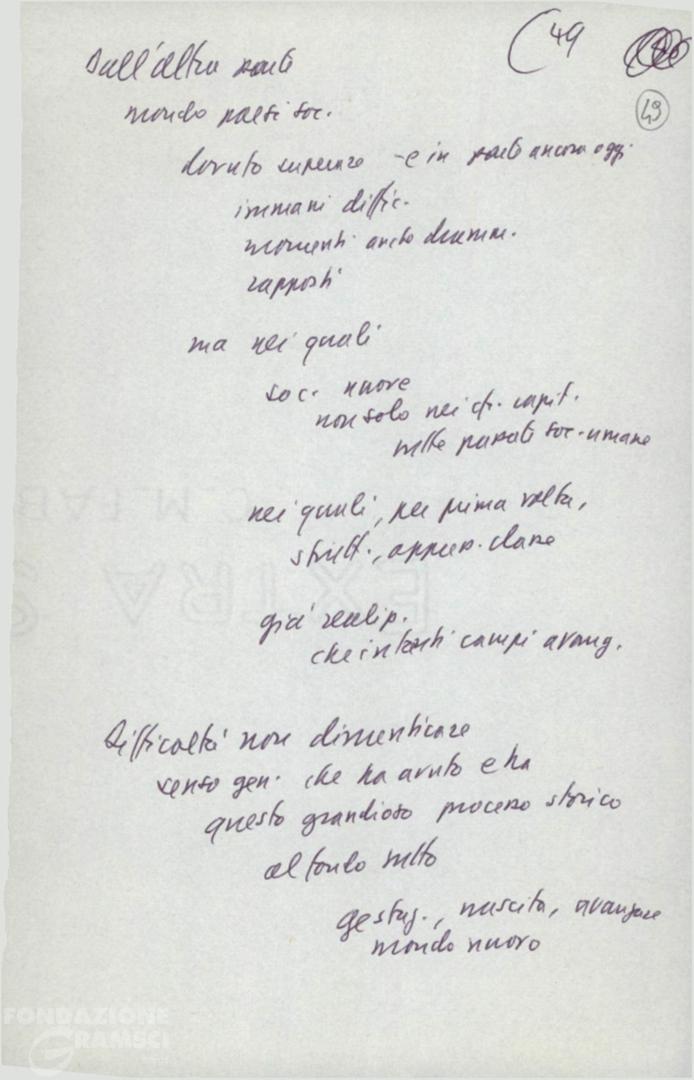 (49
49
Dall'altra parte
mondo paesi soc.
dovuto superare - e in parte ancora oggi
immani diffic.
momenti anche dramm.
rapporti
ma nei quali
soc. nuove
non solo nei cfr. capit.
nelle passate soc. umane
nei quali, per prima volta,
strutt., appun. classe
già realizz.
che in tanti campi avang.
Difficoltà non dimenticare
senso gen. che ha avuto e ha
questo grandioso processo storico
al fondo sotto
gestaz., nascita, avanzare
mondo nuovo
FONDAZIONE
GRAMSCI